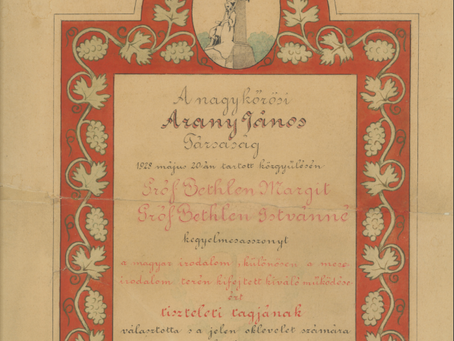 A nagykőrösi
Arany János
Társaság
1928 május 20-án tartott közgyűlésén
Gróf Bethlen Margit
Gróf Bethlen Istvánné
kegyelmesasszonyt
a magyar irodalom, különösen a mese-
irodalom terén kifejtett kiváló működése-
ért
tiszteleti tagjának
választotta s a jelen oklevelet számára